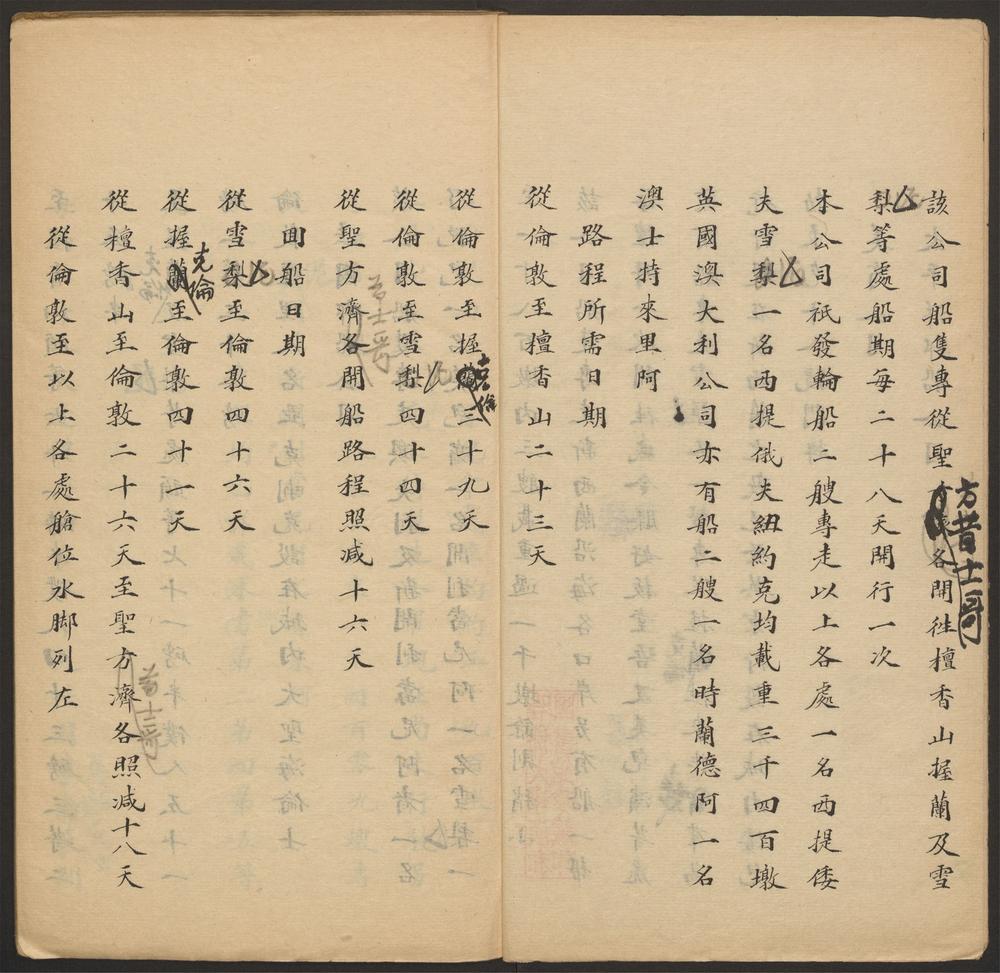 該公司船隻專從聖方昔士哥各開往檀香山握蘭及雪
梨等處船期每二十八天開行一次
本公司祇發輪船二艘專走以上各處一名西提倭
夫雪梨一名西提俄夫紐約克均載重三千四百墩
英國澳大利公司亦有船二艘一名時蘭德阿一名
澳士特來里阿
路程所需日期
從倫敦至檀香山二十三天
從倫敦至握克倫三十九天
從倫敦至雪梨四十四天
從聖方濟各開船路程照減十六天
昔士哥
回船日期
從雪梨至倫敦四十六天
從握蘭至倫敦四十一天
克倫
從檀香山至倫敦二十六天至聖方濟各照減十八天
昔士哥
從倫敦至以上各處艙位水脚列左